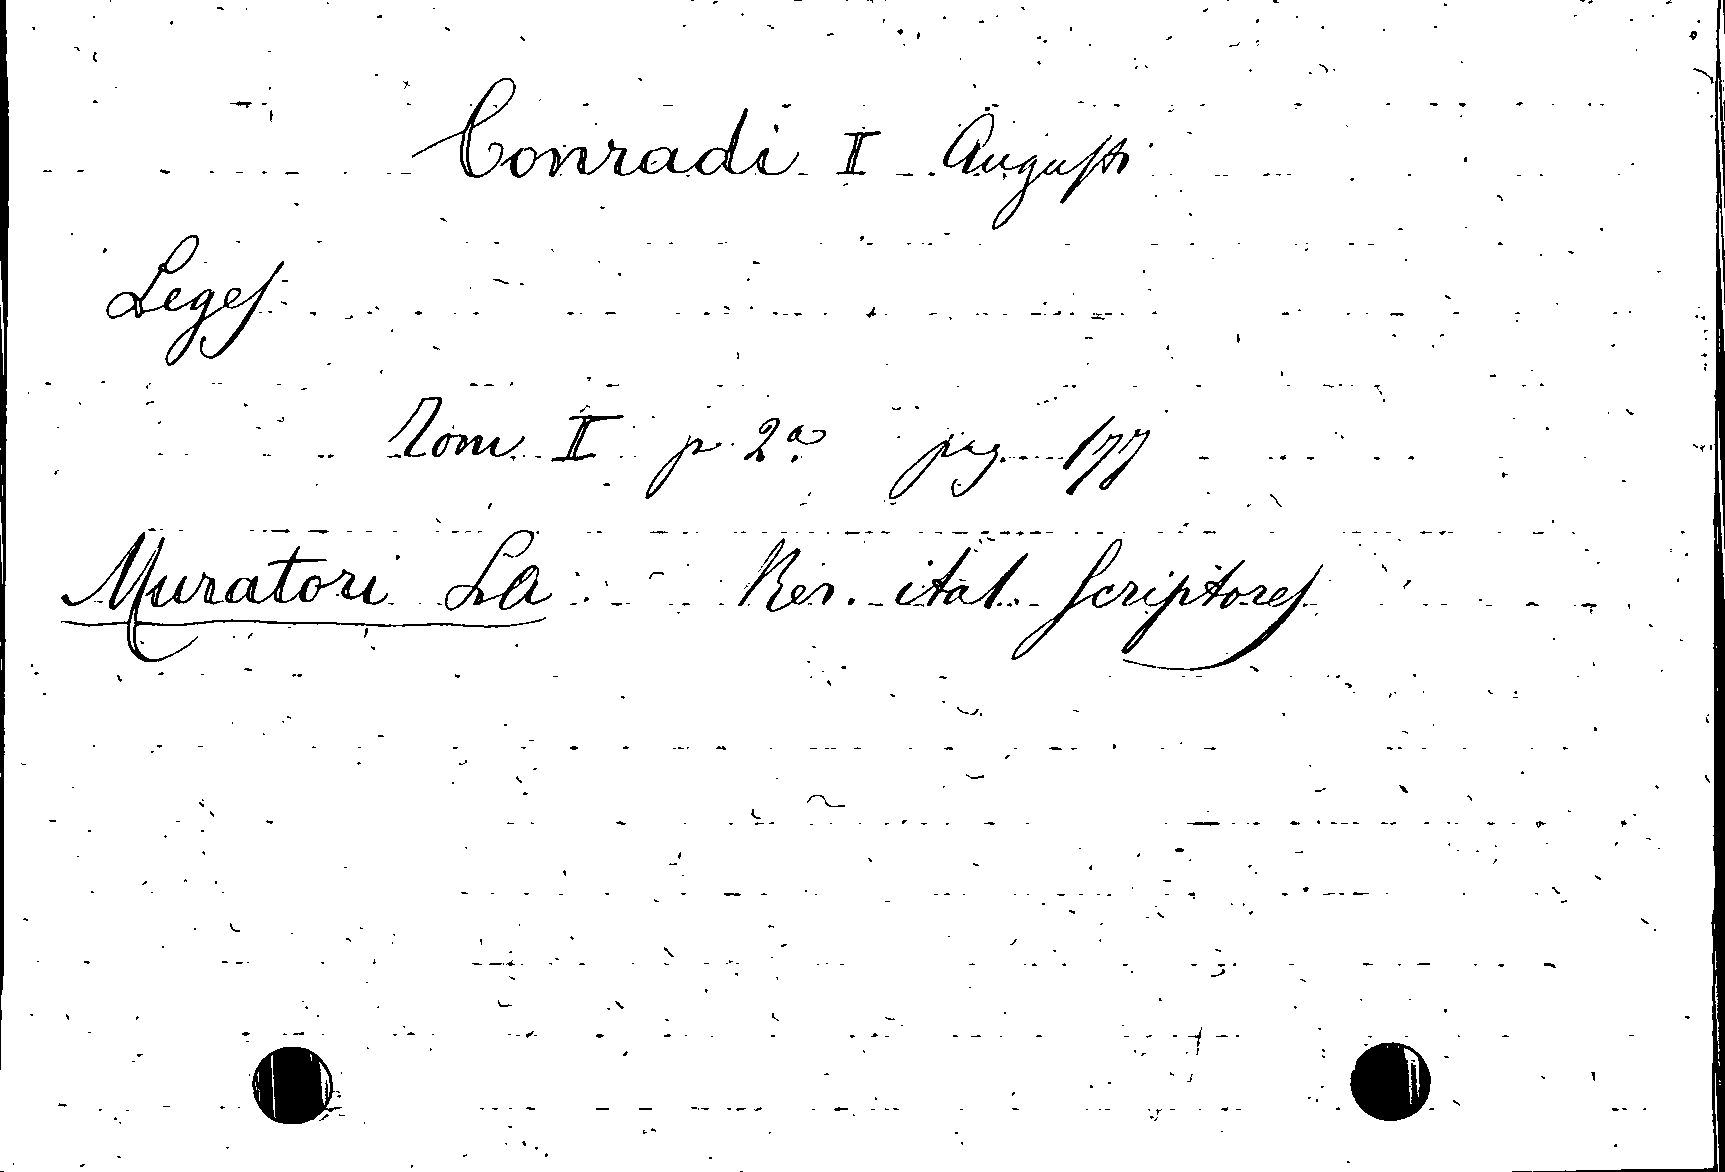 Conradi I Augusti
Leges
Tom II p. 2a pag. 177
Muratori LA Rer. ital. Scriptores